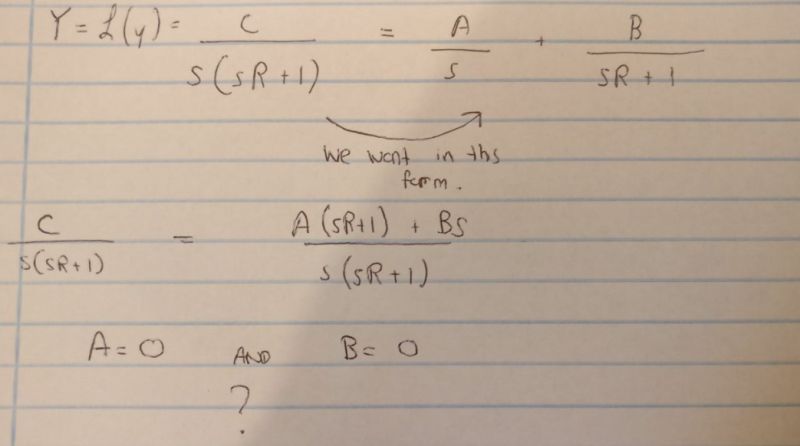 Y = ℒ(y) = C / s(sR+1) = A / s + B / sR+1
We want in ths
form.
C / s(sR+1) = A(sR+1) + Bs / s(sR+1)
A = 0 AND B = 0
?